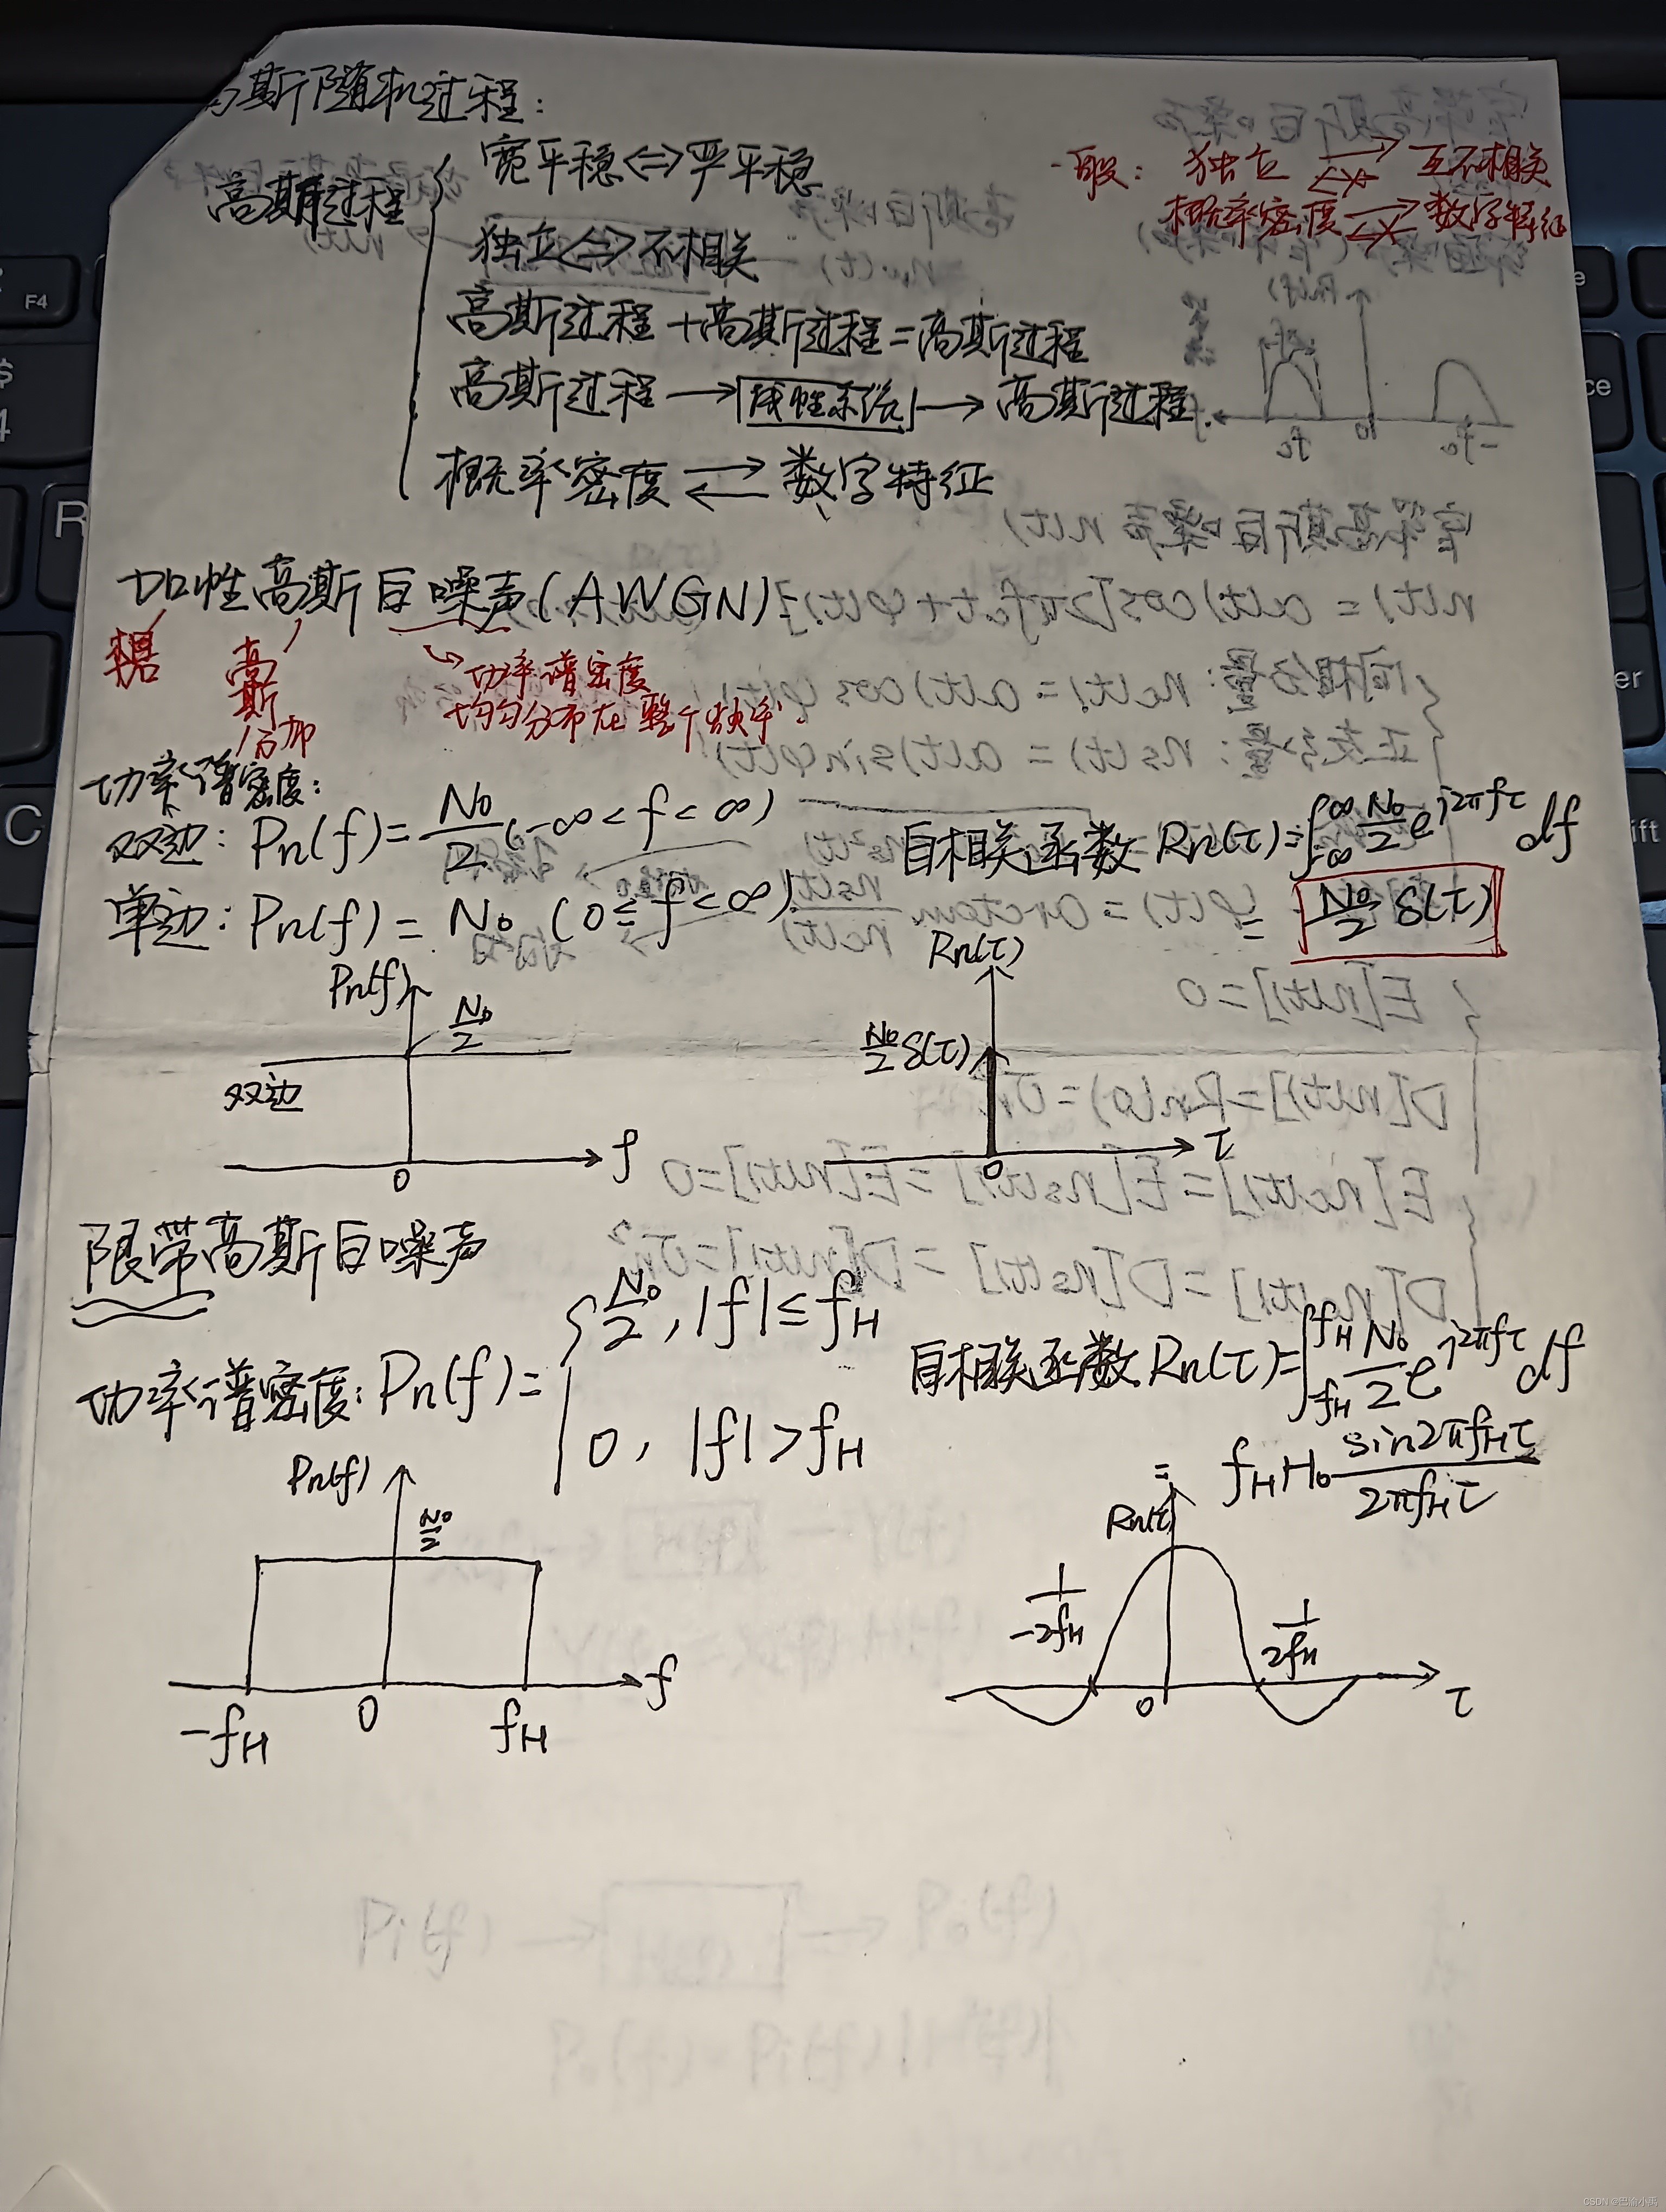 高斯随机过程:
高斯过程
宽平稳<=>严平稳
独立<=>不相关
高斯过程+高斯过程=高斯过程
高斯过程→线性系统→高斯过程
概率密度⇄数字特征
一般: 独立 互不相关
概率密度 数字特征
加性高斯白噪声(AWGN)
高斯
功率谱密度
均匀分布在整个频率
功率谱密度:
双边: Pn(f)=N₀/2 (-∞<f<∞)
单边: Pn(f)=N₀ (0≤f<∞)
自相关函数 Rn(τ)=∫_{-∞}^{∞} N₀/2 e^{j2πfτ} df
= N₀/2 δ(τ)
Pn(f)
N₀/2
双边
0
f
Rn(τ)
N₀/2 δ(τ)
0
τ
限带高斯白噪声
功率谱密度: Pn(f)= { N₀/2, |f|≤fH
0, |f|>fH
自相关函数 Rn(τ)=∫_{-fH}^{fH} N₀/2 e^{j2πfτ} df
= fH H₀ sin2πfHτ / 2πfHτ
Pn(f)
N₀/2
-fH
0
fH
f
Rn(τ)
1/-2fH
1/2fH
0
τ
F4
$
4
R
C
CSDN @巴渝小禹